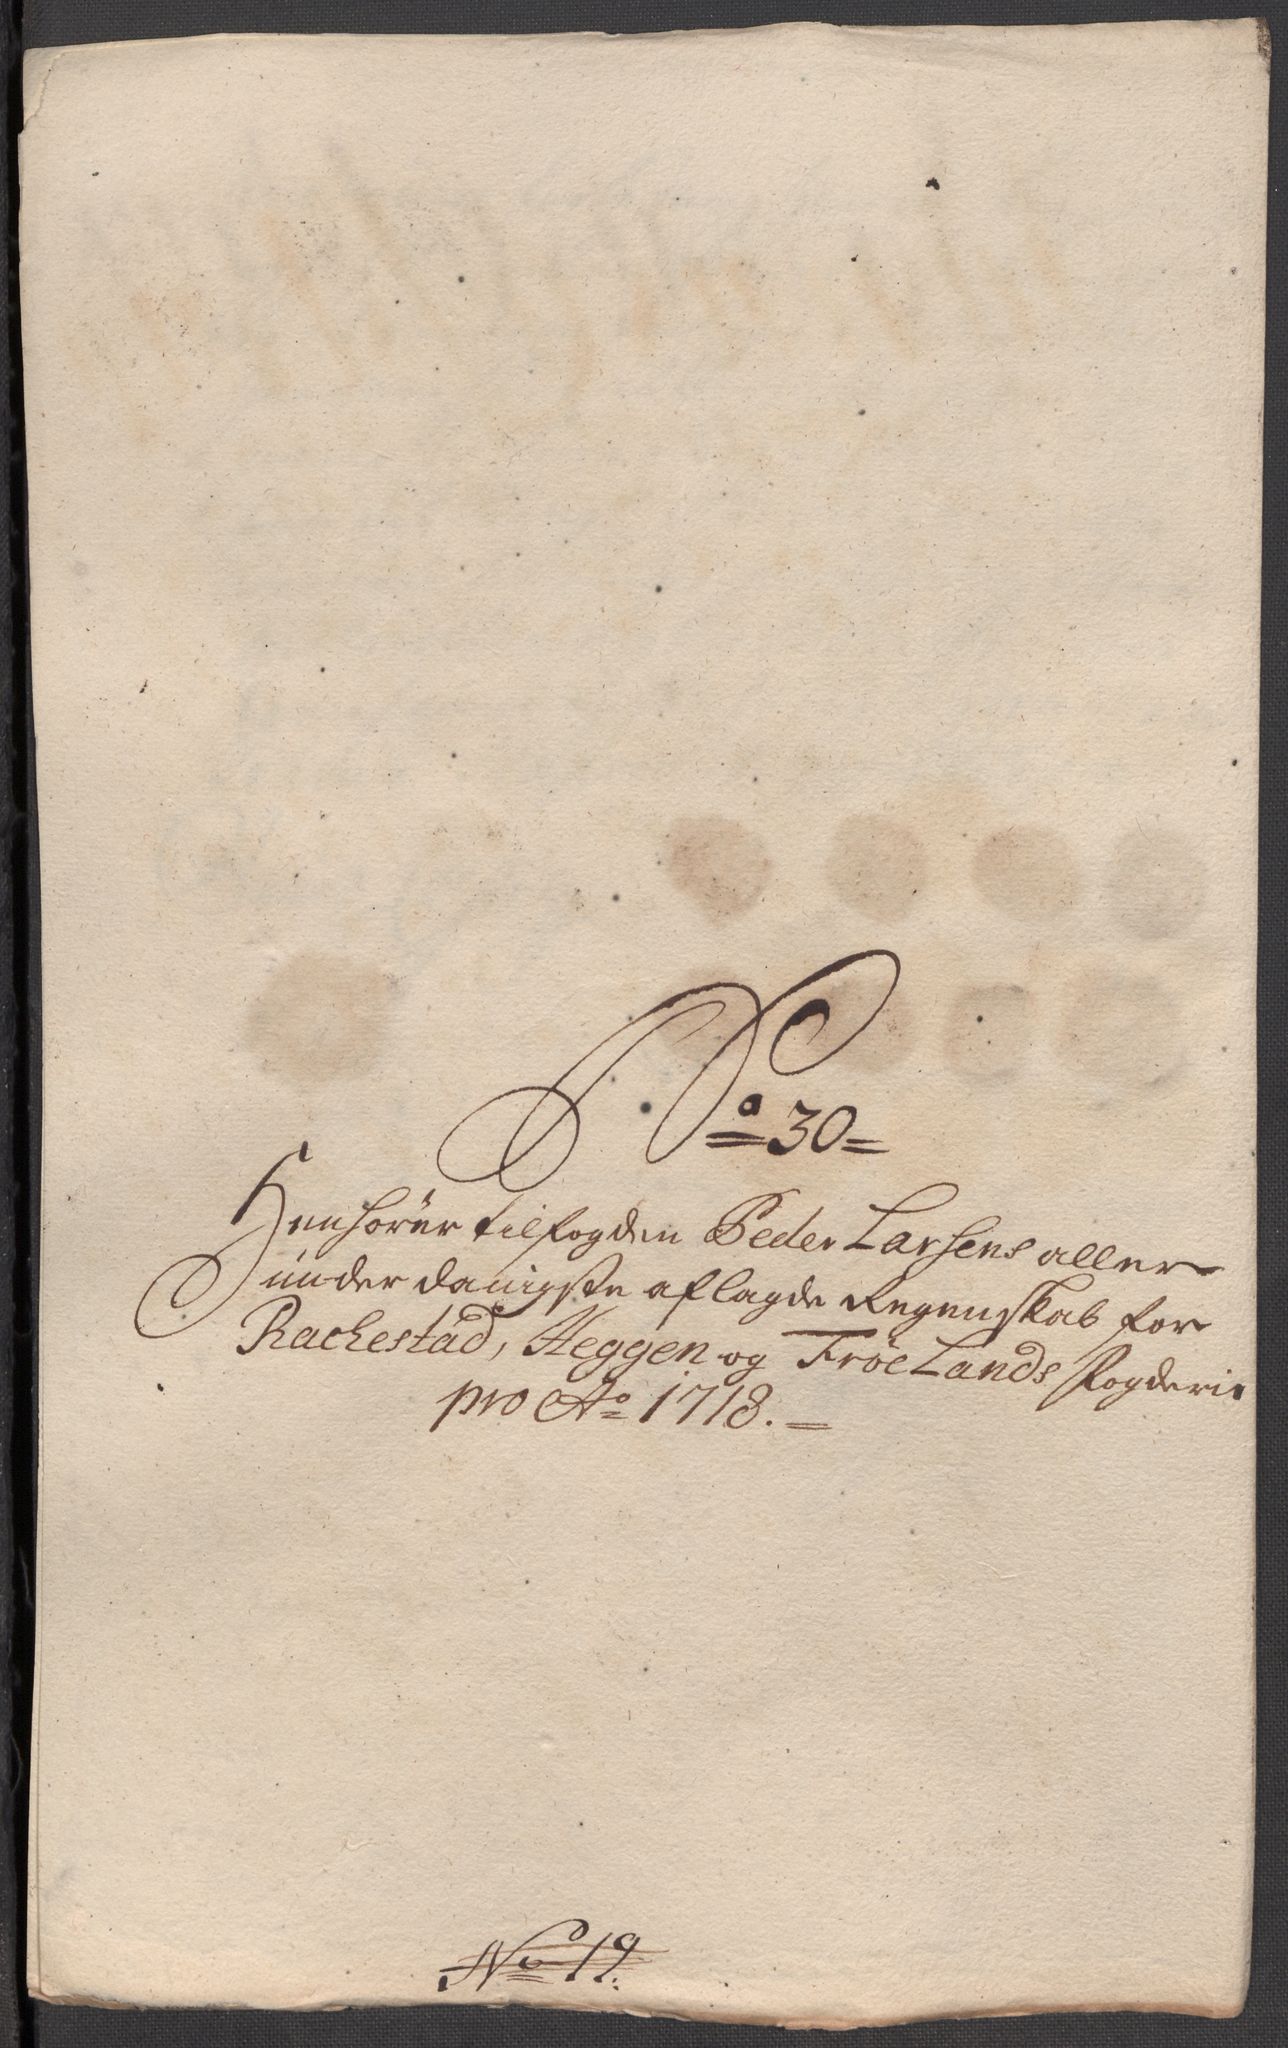 No 30
Henhörer til fogden Peder Larsens aller
under danigste aflagde Regenskab for
Rachestad, Heggen og Fröelands Fogderie
pro Ao 1718.
No 19.